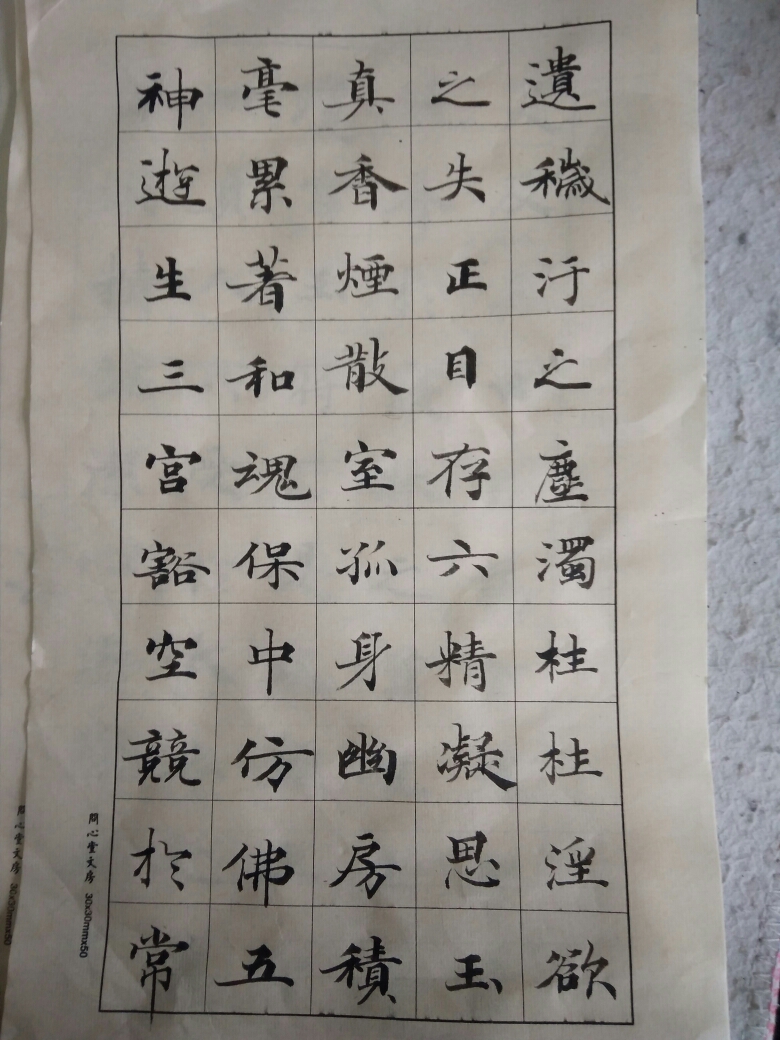 遺穢汙之塵濁柱柱淫欲
之失正目存六精凝思玉
真香煙散室孤身幽房積
毫累著和魂保中仿佛五
神遊生三宮豁空競於常
問心堂文房 30x30mmx50
問心堂文房 30x30mmx50